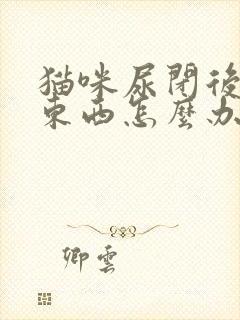 猫咪尿閉後
東西怎麼办
卿雲